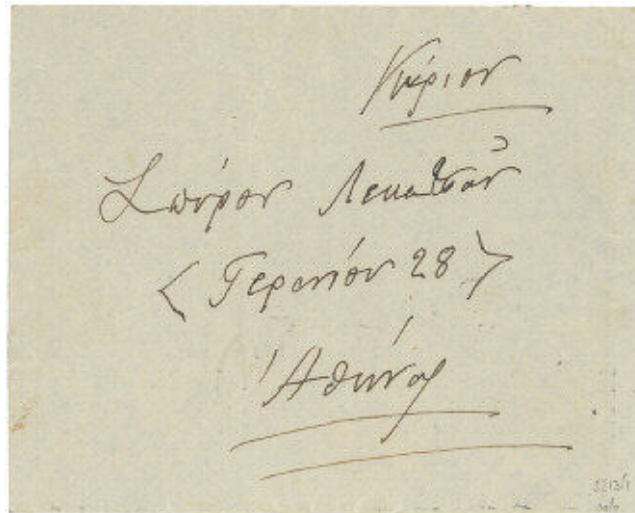 Κύριον
Σπύρον Λεκατσᾶν
< Γερανίου 28 >
Ἀθήνας